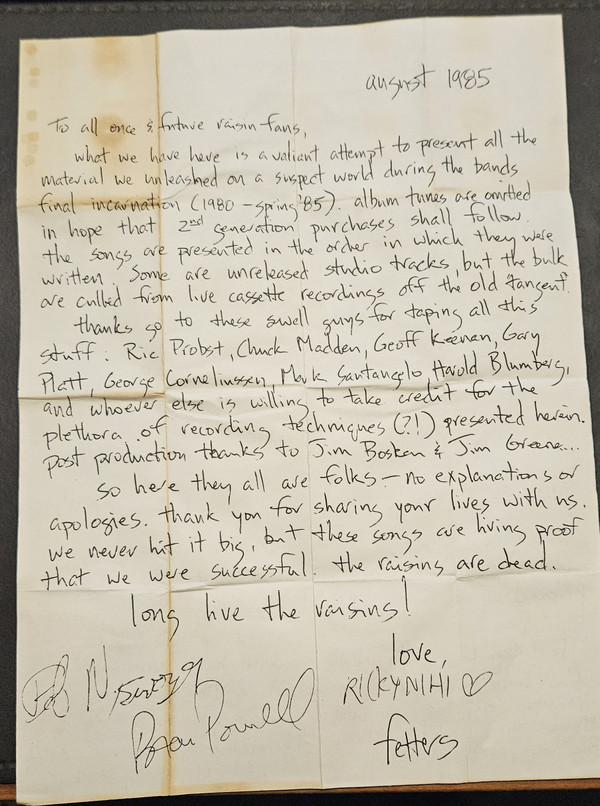 august 1985
To all once & future raisin fans,
what we have here is a valiant attempt to present all the
material we unleashed on a suspect world during the bands
final incarnation (1980 - spring '85). album tunes are omitted
in hope that 2nd generation purchases shall follow.
the songs are presented in the order in which they were
written. Some are unreleased studio tracks, but the bulk
are culled from live cassette recordings off the old tangent.
thanks go to these swell guys for taping all this
stuff. Ric Probst, Chuck Madden, Geoff Keenan, Gary
Platt, George Cornelinssen, Mark Santangelo Harold Blumberg,
and whoever else is willing to take credit for the
plethora of recording techniques (?!) presented herein.
post production thanks to Jim Bosken & Jim Greene...
so here they all are folks - no explanations or
apologies. thank you for sharing your lives with us.
we never hit it big, but these songs are living proof
that we were successful. the raisins are dead.
long live the raisins!
love,
RICKY NIHI ♡
Bob Nyswonger
Brian Powell
fetters